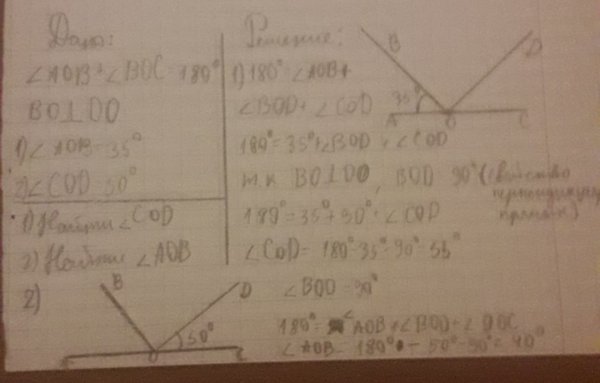 Дано:
∠AOB + ∠BOC = 180°
BO⊥DO
1) ∠AOB = 35°
2) ∠COD = 50°
1) Найти ∠COD
2) Найти ∠AOB
Решение:
1) 180° = ∠AOB +
∠BOD + ∠COD
180° = 35° + ∠BOD + ∠COD
т.к BO⊥DO, BOD = 90° (свойство
перпендикуляр
прямых)
180° = 35° + 90° + ∠COD
∠COD = 180° - 35° - 90° = 55°
B
D
35°
A
O
C
2)
B
D
50°
O
C
∠BOD = 90°
180° = ∠AOB + ∠BOD + ∠DOC
∠AOB = 180° - 50° - 90° = 40°